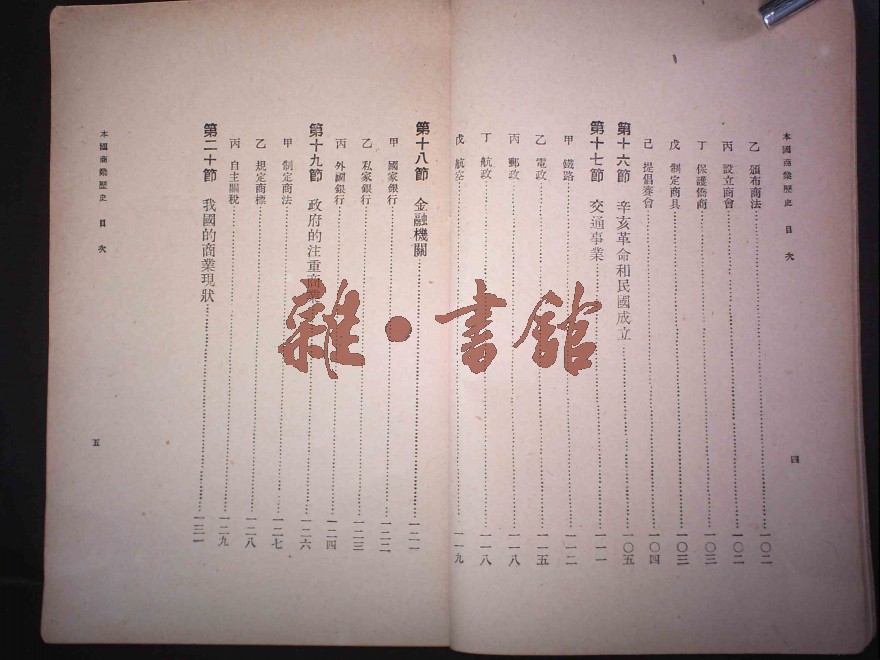 本國商業歷史 目次
四
乙 頒布商法……一〇二
丙 設立商會……一〇二
丁 保護僑商……一〇三
戊 制定商具……一〇三
己 提倡賽會……一〇四
第十六節 辛亥革命和民國成立……一〇五
第十七節 交通事業……一一一
甲 鐵路……一一二
乙 電政……一一五
丙 郵政……一一八
丁 航政……一一八
戊 航空……一一九
第十八節 金融機關……一二一
甲 國家銀行……一二二
乙 私家銀行……一二三
丙 外國銀行……一二四
第十九節 政府的注重商業……一二六
甲 制定商法……一二七
乙 規定商標……一二八
丙 自主關稅……一二九
第二十節 我國的商業現狀……一三一
本國商業歷史 目次
五
雜·書館